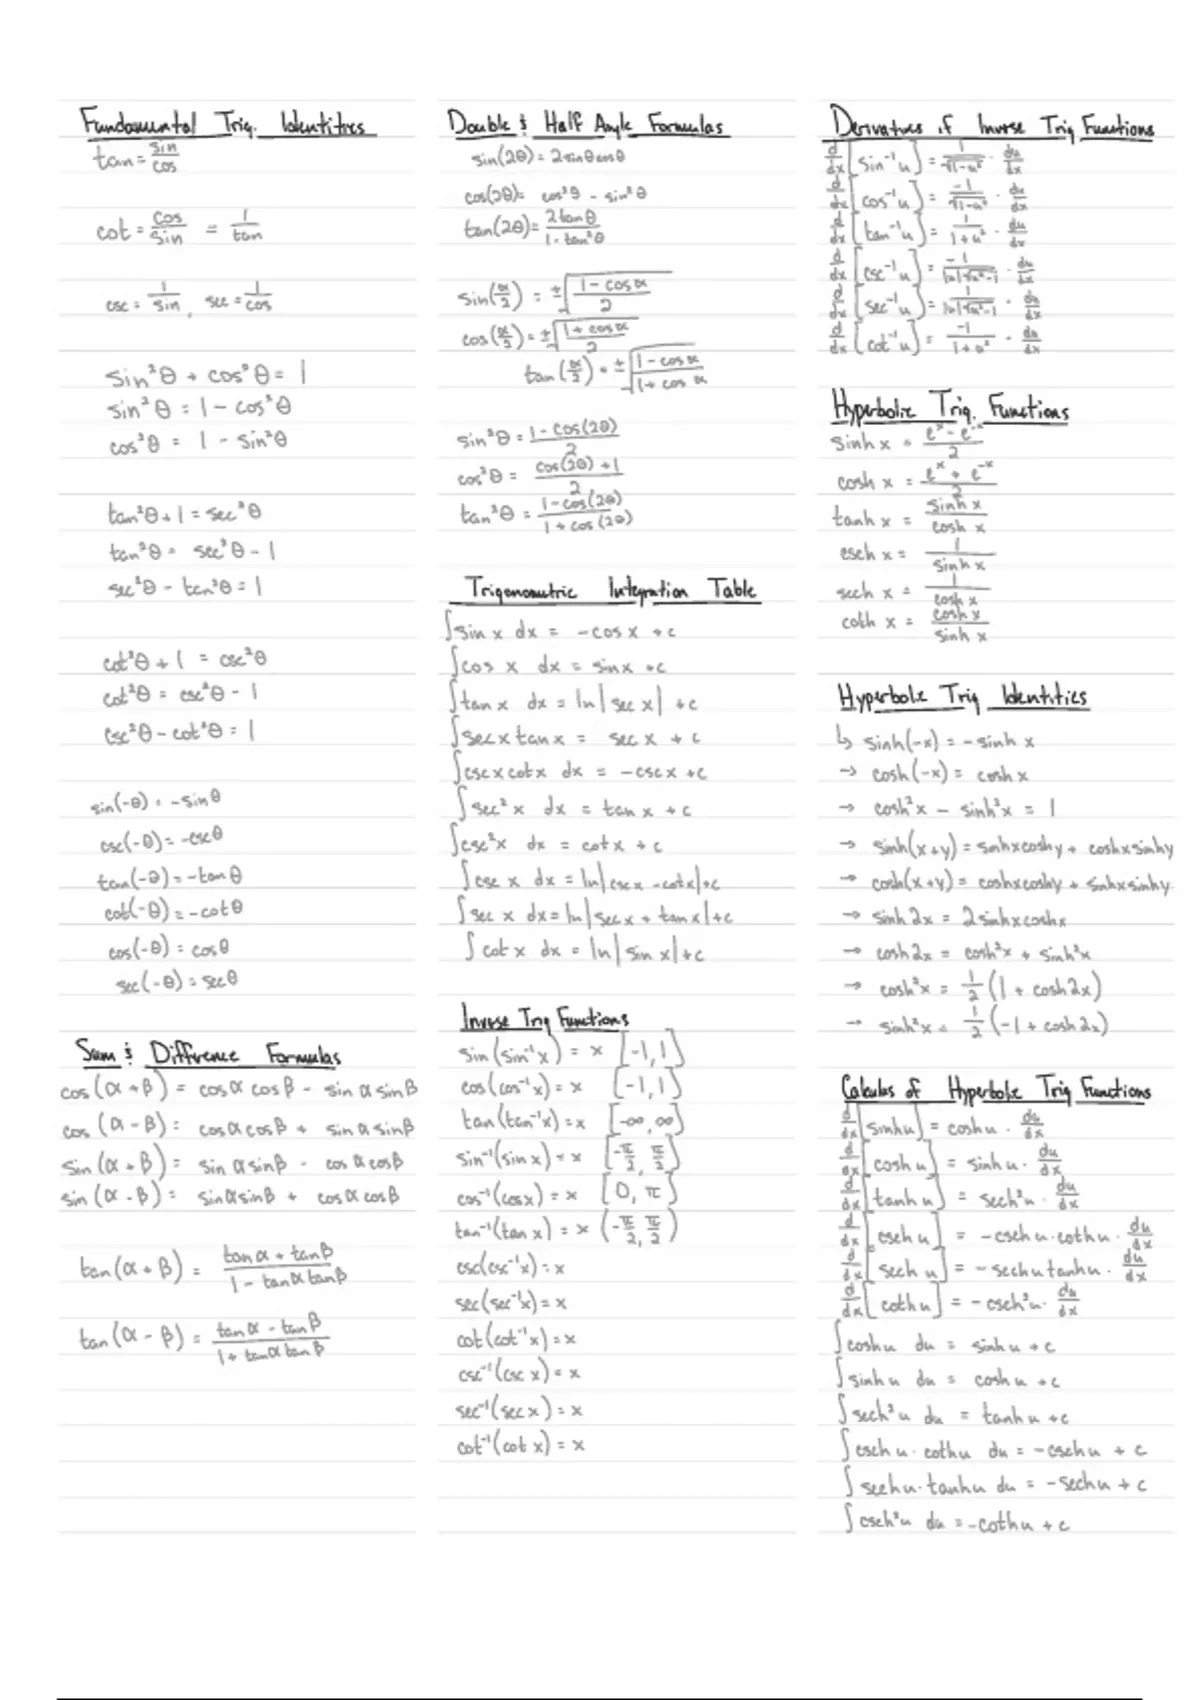 Fundamental Trig. Identities
tan = sin/cos
cot = cos/sin = 1/tan
csc = 1/sin, sec = 1/cos
sin²θ + cos²θ = 1
sin²θ = 1 - cos²θ
cos²θ = 1 - sin²θ
tan²θ + 1 = sec²θ
tan²θ = sec²θ - 1
sec²θ - tan²θ = 1
cot²θ + 1 = csc²θ
cot²θ = csc²θ - 1
csc²θ - cot²θ = 1
sin(-θ) = -sinθ
csc(-θ) = -cscθ
tan(-θ) = -tanθ
cot(-θ) = -cotθ
cos(-θ) = cosθ
sec(-θ) = secθ
Sum & Difference Formulas
cos(α + β) = cosα cosβ - sinα sinβ
cos(α - β) = cosα cosβ + sinα sinβ
sin(α + β) = sinα sinβ - cosα cosβ
sin(α - β) = sinα sinβ + cosα cosβ
tan(α + β) = (tanα + tanβ)/(1 - tanα tanβ)
tan(α - β) = (tanα - tanβ)/(1 + tanα tanβ)
Double & Half Angle Formulas
sin(2θ) = 2sinθcosθ
cos(2θ) = cos²θ - sin²θ
tan(2θ) = 2tanθ/(1 - tan²θ)
sin(α/2) = ±√((1 - cosα)/2)
cos(α/2) = ±√((1 + cosα)/2)
tan(α/2) = ±√((1 - cosα)/(1 + cosα))
sin²θ = (1 - cos(2θ))/2
cos²θ = (cos(2θ) + 1)/2
tan²θ = (1 - cos(2θ))/(1 + cos(2θ))
Trigonometric Integration Table
∫sin x dx = -cos x + c
∫cos x dx = sin x + c
∫tan x dx = ln|sec x| + c
∫sec x tan x = sec x + c
∫csc x cot x dx = -csc x + c
∫sec² x dx = tan x + c
∫csc²x dx = cot x + c
∫csc x dx = ln|csc x - cot x| + c
∫sec x dx = ln|sec x + tan x| + c
∫cot x dx = ln|sin x| + c
Inverse Trig Functions
sin(sin⁻¹x) = x [-1, 1]
cos(cos⁻¹x) = x [-1, 1]
tan(tan⁻¹x) = x [-∞, ∞)
sin⁻¹(sin x) = x [-π/2, π/2]
cos⁻¹(cos x) = x [0, π]
tan⁻¹(tan x) = x (-π/2, π/2)
csc(csc⁻¹x) = x
sec(sec⁻¹x) = x
cot(cot⁻¹x) = x
csc⁻¹(csc x) = x
sec⁻¹(sec x) = x
cot⁻¹(cot x) = x
Derivatives of Inverse Trig Functions
d/dx[sin⁻¹u] = 1/√(1-u²) · du/dx
d/dx[cos⁻¹u] = -1/√(1-u²) · du/dx
d/dx[tan⁻¹u] = 1/(1+u²) · du/dx
d/dx[csc⁻¹u] = -1/(|u|√(u²-1)) · du/dx
d/dx[sec⁻¹u] = 1/(|u|√(u²-1)) · du/dx
d/dx[cot⁻¹u] = -1/(1+u²) · du/dx
Hyperbolic Trig. Functions
sinh x = (eˣ - e⁻ˣ)/2
cosh x = (eˣ + e⁻ˣ)/2
tanh x = sinh x/cosh x
csch x = 1/sinh x
sech x = 1/cosh x
coth x = cosh x/sinh x
Hyperbolic Trig Identities
↳ sinh(-x) = -sinh x
→ cosh(-x) = cosh x
→ cosh²x - sinh²x = 1
→ sinh(x+y) = sinhxcoshy + coshxsinhy
→ cosh(x+y) = coshxcoshy + sinhxsinhy
→ sinh 2x = 2sinhxcoshx
→ cosh 2x = cosh²x + sinh²x
→ cosh²x = 1/2(1 + cosh2x)
→ sinh²x = 1/2(-1 + cosh2x)
Calculus of Hyperbolic Trig Functions
d/dx[sinhu] = coshu · du/dx
d/dx[coshu] = sinhu · du/dx
d/dx[tanhu] = sech²u · du/dx
d/dx[cschu] = -cschu·cothu · du/dx
d/dx[sechu] = -sechutanhu · du/dx
d/dx[cothu] = -csch²u · du/dx
∫coshu du = sinhu + c
∫sinhu du = coshu + c
∫sech²u du = tanhu + c
∫cschu·cothu du = -cschu + c
∫sechu·tanhu du = -sechu + c
∫csch²u du = -cothu + c